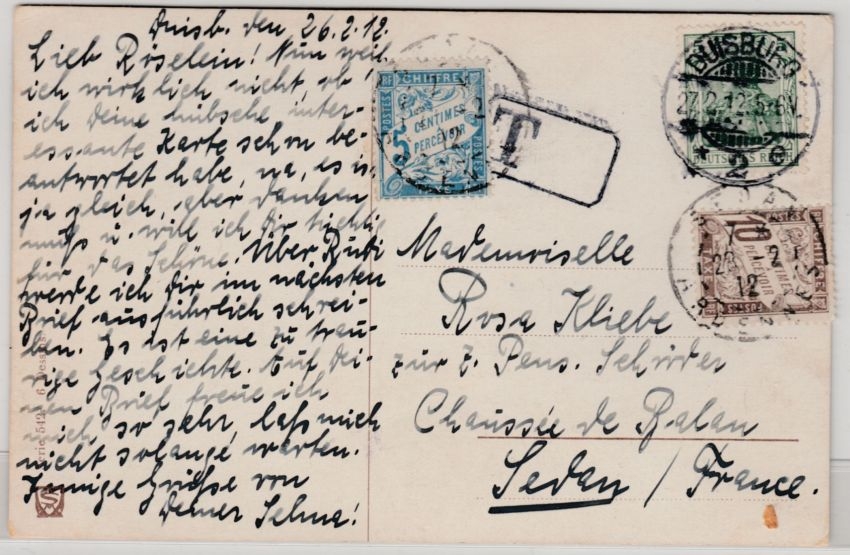 Duisb. den 26.2.12.
Lieb Röselein! Nun weiß
ich wirklich nicht, ob
ich Deine hübsche inter-
essante Karte schon be-
antwortet habe, na, es is
ja gleich, aber danken
muß u. will ich Dir tüchtig
für das Schöne. Über
werde ich Dir im nächsten
Brief ausführlich schrei-
ben. Es ist eine zu trau-
rige Geschichte. Auf Dei-
nen Brief freue ich
mich so sehr, laß mich
nicht solange warten.
Innige Grüße von
Deiner Selma!
CHIFFRE
POSTES
RF
5
CENTIMES
A
PERCEVOIR
T
DUISBURG
27.2.12.5-6V.
* 2 c
DEUTSCHES REICH
10
CENTIMES
A
PERCEVOIR
POSTES
SEDAN
28 -2
12
ARDENNES
Mademoiselle
Rosa Kliebe
zur Z. Pens. Schröder
Chaussée de Balan
Sedan / France.
Serie 542